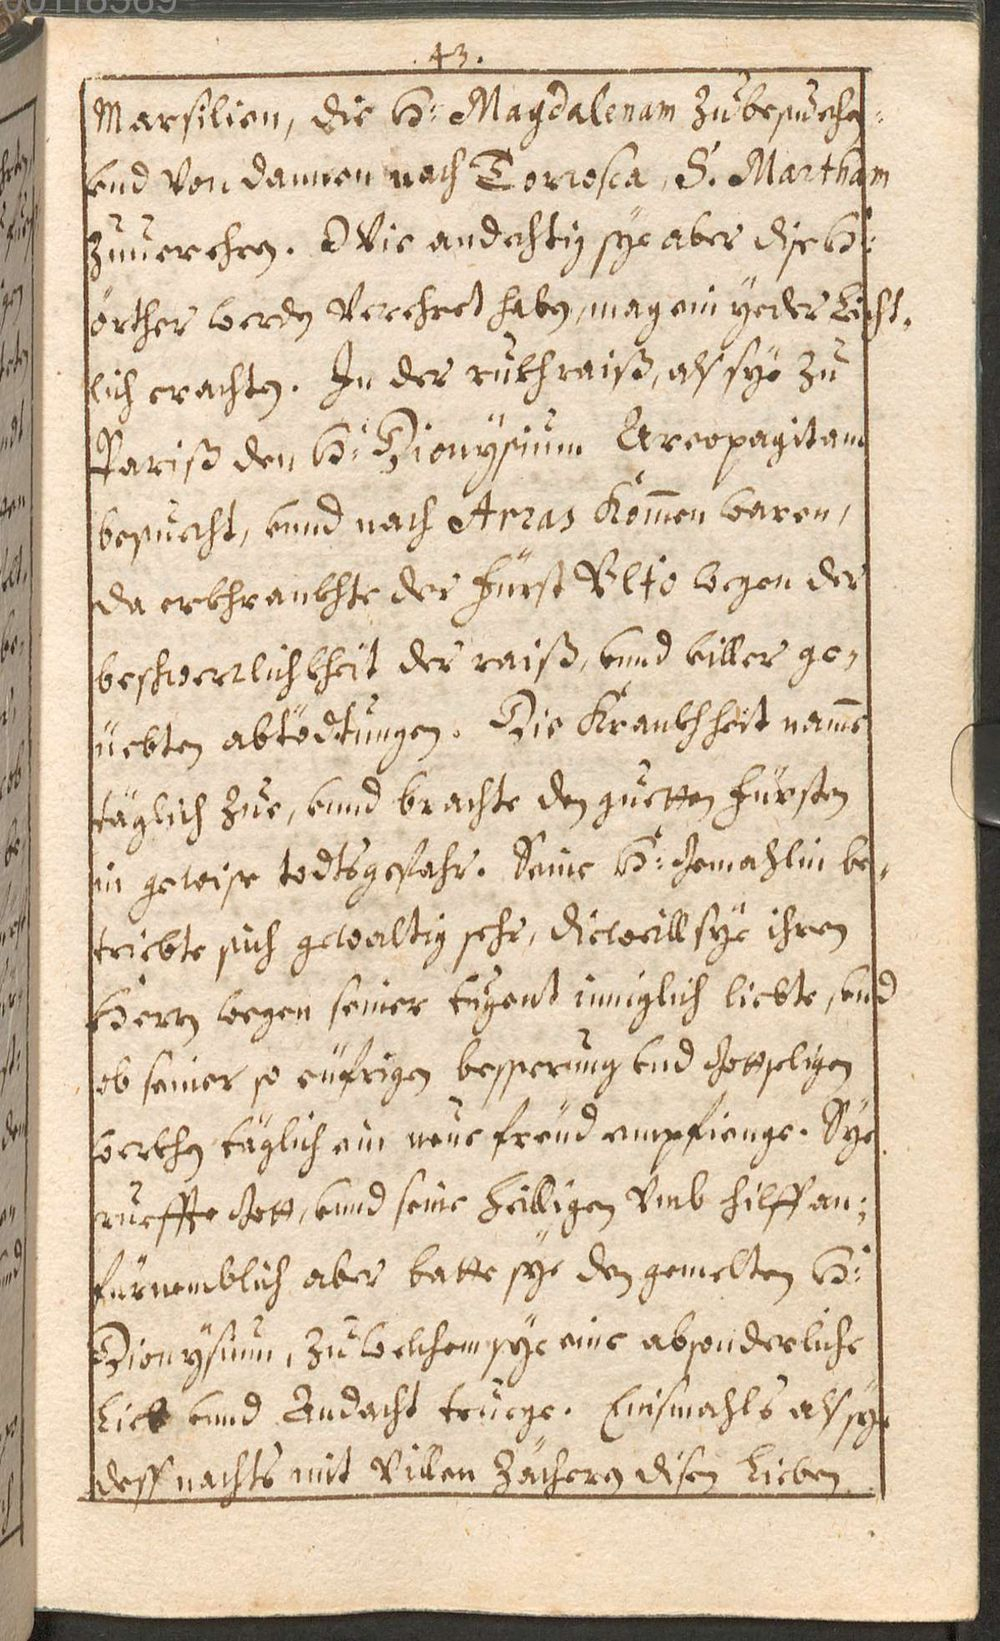 00118389
.43.
Marsilien, die H: Magdalenam zubesuechen,
vnd von dannen nach Torrosca, S. Martham
zuuerehren. O Wie andechtig sÿe aber dise H:
örther werden verehret haben, mag ein ÿeder Leicht-
lich erachten. In der rukhraiß, als sÿe zu
Pariß den H: Dionÿsium Areopagitam
besuecht, vnnd nach Arras kom̄en waren,
da erkhrankhte der Fürst Vlfo wegen der
beschwerrlichkheit der raiß, vnnd viller ge-
üebten abtödtungen. Die Krankhheit nam̄e
täglich zue, vnnd brachte den guetten Fürsten
in gewise todtsgefahr. Seine H: Gemahlin be-
triebte sich gewaltig sehr, dieweill sÿe ihren
Herrn wegen seiner tugent inniglich liebte, vnd
ob seiner so eüfrigen besserung vnd Gottseligen
werkhen täglich ein neue freüd empfienge. Sÿe
rueffte Gott, vnnd seine Heilligen vmb hilff an;
fürnemblich aber batte sÿe den gemelten H:
Dionÿsium, zu welchem sÿe eine absonderliche
Lieb vnnd Andacht truege. Einsmahls als sÿe
dess nachts mit villen Zächeren disen Lieben